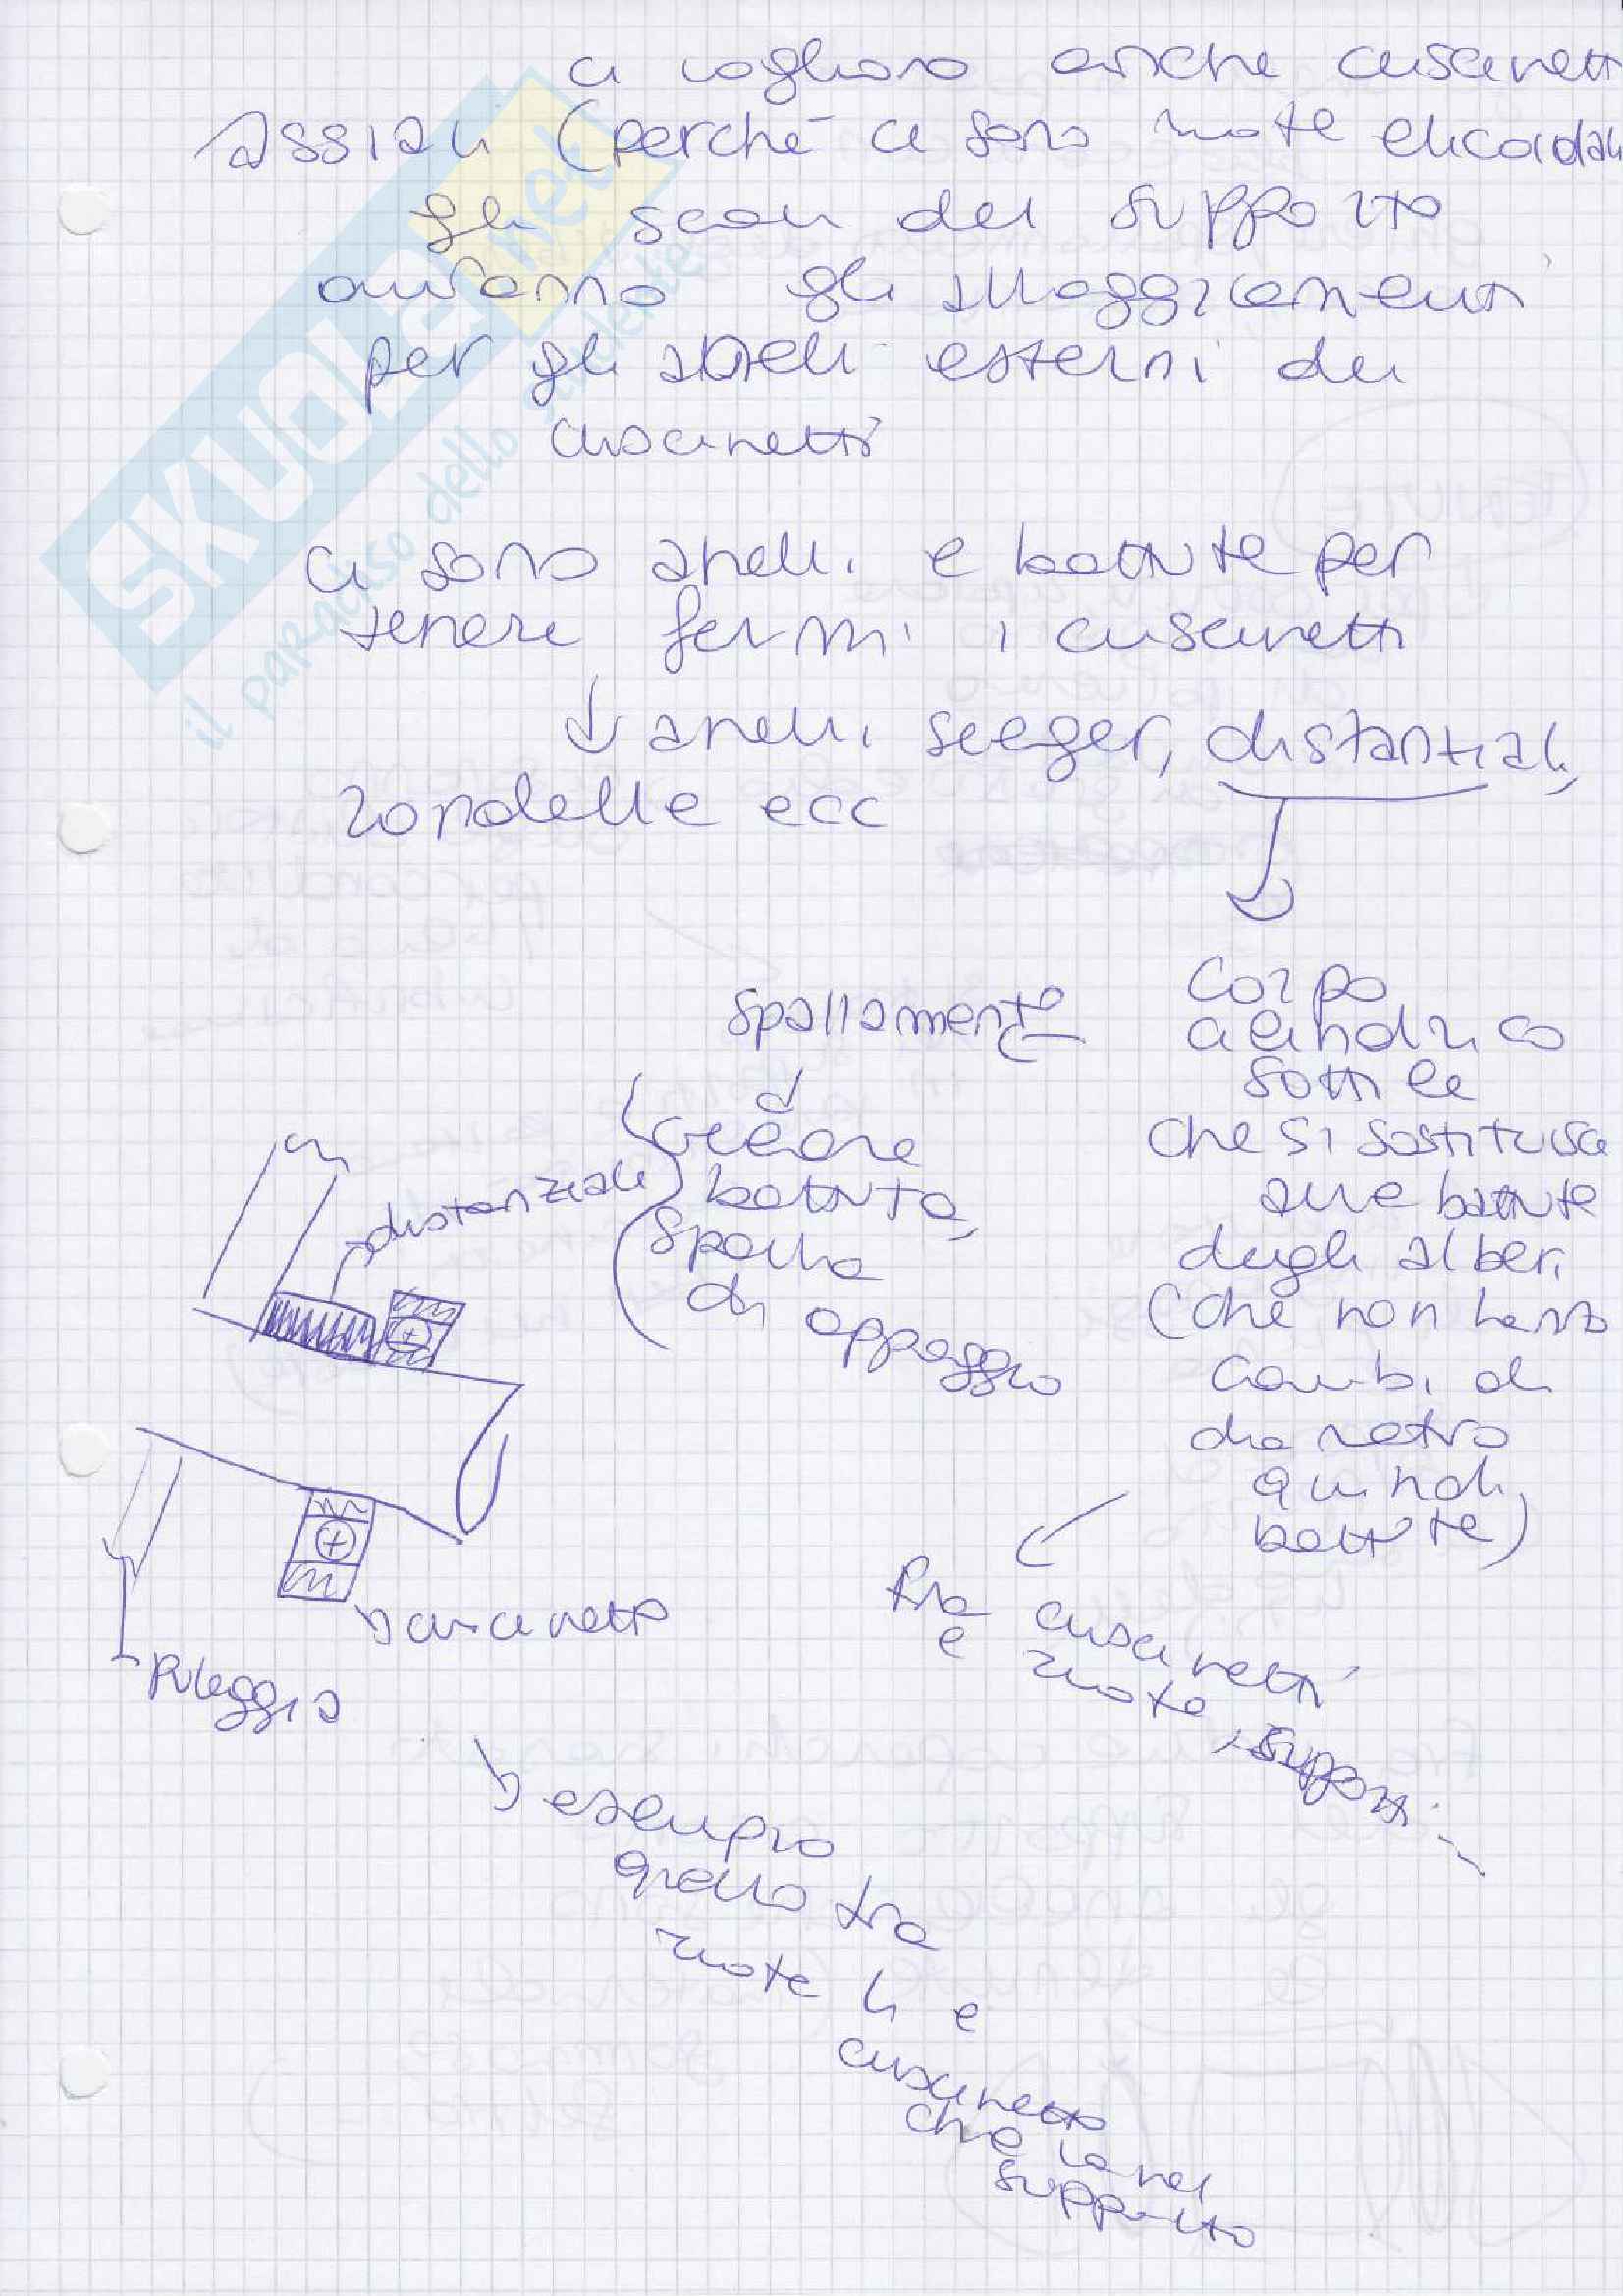 ci vogliono anche cuscinetti
assiali (perché ci sono ruote elicoidali
gli scan del supporto
avranno gli alloggiamenti
per gli anelli esterni dei
cuscinetti
ci sono anelli e battute per
tenere fermi i cuscinetti
anelli seeger, distanziali,
rondelle ecc
corpo
cilindrico
sottile
che si sostituisce
alle battute
degli alberi
(che non hanno
cambi di
diametro
quindi
battute)
fra cuscinetti
e ruote, supporti...
spallamento
creare
battuta,
spalla
di appoggio
distanziale
cuscinetto
Puleggia
esempio
quello tra
ruote li e
cuscinetto
che va nel
supporto
SKUOLA.net
il paradiso dello studente
TENUTE